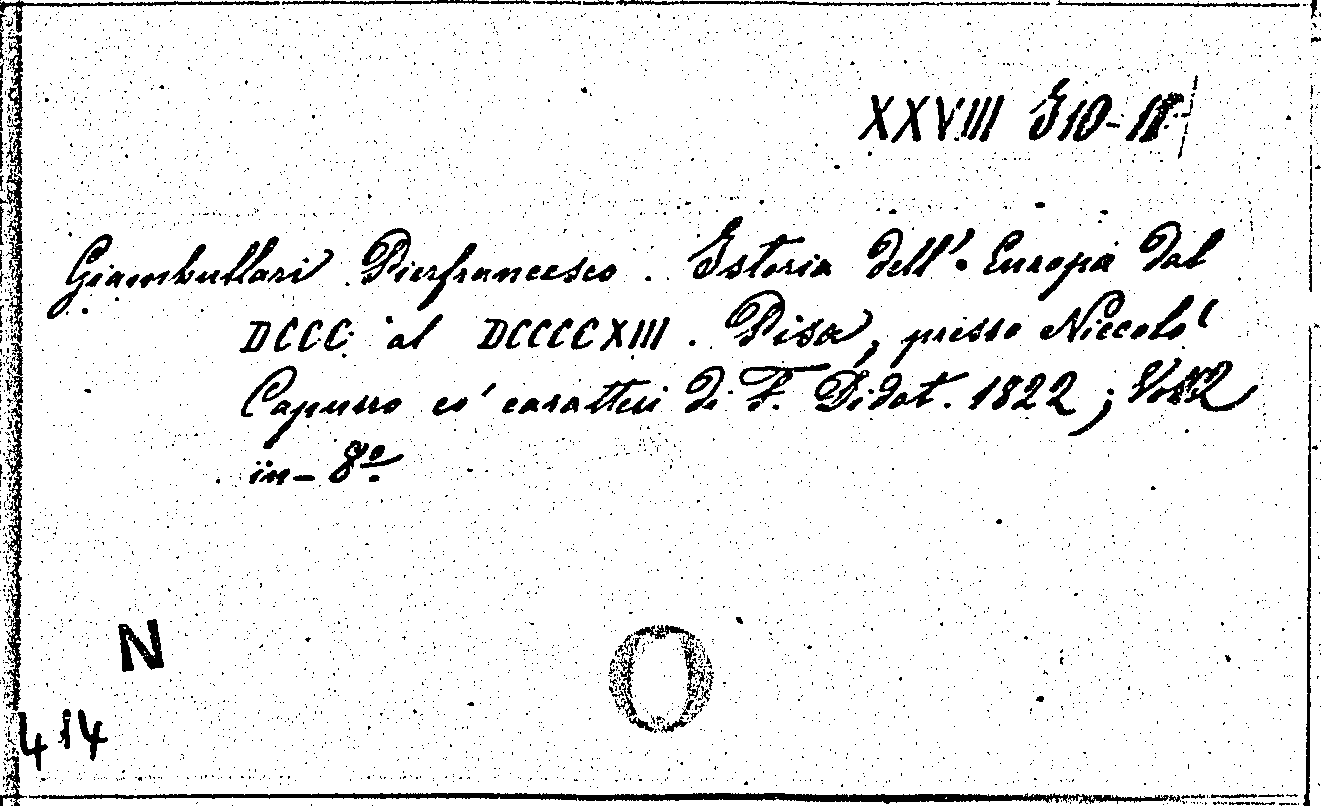 XXVIII I 10-11
Giambullari Pierfrancesco. Istoria dell' Europa dal
DCCC al DCCCCXIII. Pisa, presso Niccolò
Capurro co' caratteri di F. Didot. 1822; Vol. 2
in-8º
N
O
414